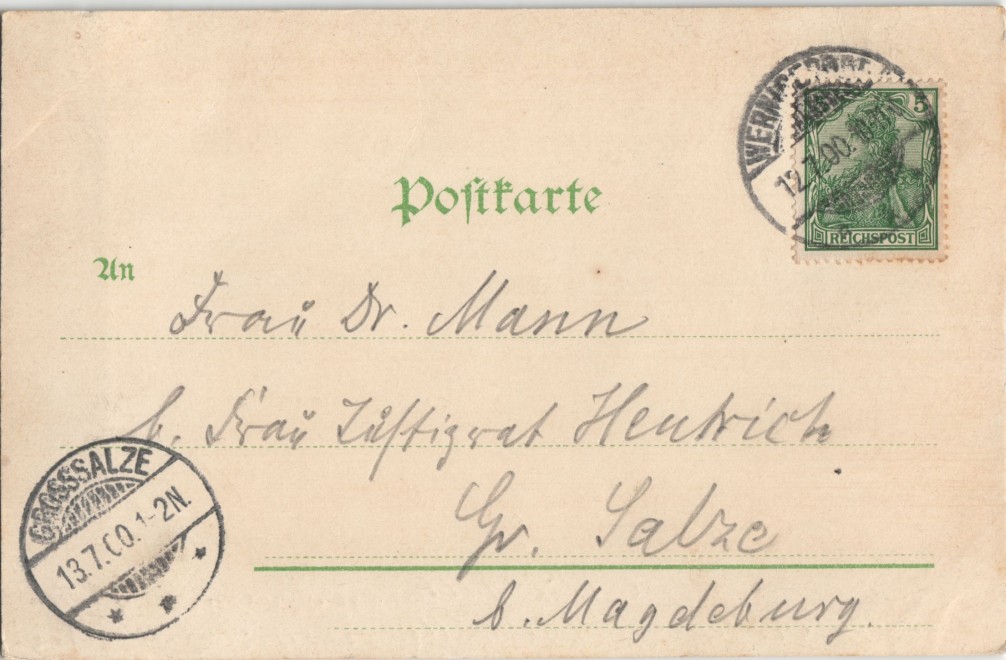 Postkarte
WERNIGERODE
12.7.00.
5
REICHSPOST
An
Frau Dr. Mann
b. Frau Justizrat Hentrich
Gr. Salze
b. Magdeburg.
GROSSSALZE
13.7.00.1-2N.